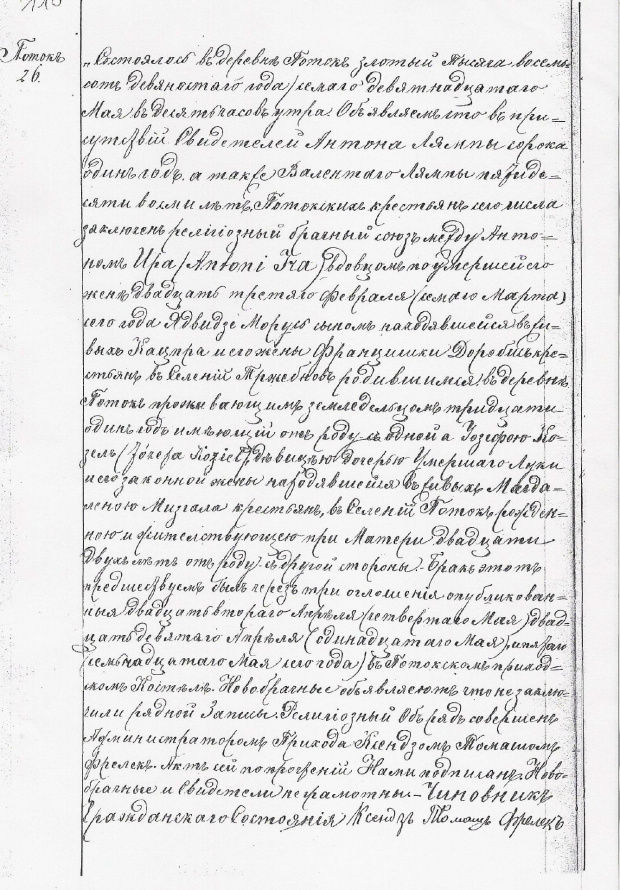 Потокъ
26.
„Состоялось въ деревнѣ Потокъ злотый тысяча восемь
сотъ девяностаго года седьмаго девятнадцатаго
Мая въ десять часовъ утра. Объявляемъ что въ при=
сутствiй Свидетелей Антона Лямпы сорока
одинъ годъ, а также Валентаго Лямпы пятиде=
сяти восми лѣтъ, Потокскихъ крестьянъ сего числа
заключенъ религiозный брачный союзъ между Анто=
номъ Ира (Antoni Ira) вдовцомъ по умершей его
женѣ двадцать третяго февраля (седмаго Марта)
сего года Ядвидзе Морусь сыномъ находявшейся въ жи=
выхъ Кацпра и его жены Францишки Доробы кре=
стьянъ въ Селенiй родившимся въ деревнѣ
Потокъ проживающимъ земледельцомъ тридцати
одинъ годъ имѣющiй отъ роду съ одной а Юзефою Ко=
зелъ (Józefa Kozieł) дѣвицею дочерью Умершаго Луки
и его законной жены находявшейся въ живыхъ Магда=
леною Мизгала крестьянъ, въ Селенiй Потокъ рожден=
ною и жительствующею при Матери двадцати
двухъ лѣтъ отъ роду съ другой стороны. Бракъ этотъ
предшествуемъ былъ черезъ три оглошенiя опубликован=
ныя двадцать втораго Апрѣля (четвертаго Мая) двад=
цать девятаго Апрѣля (одинадцатаго Мая), и пятаго
(семьнадцатаго Мая сего года) въ Потокскомъ приход=
скомъ Костелѣ. Новобрачные объявляютъ что не заклю=
чили рядной Записы. Религiозный Обрядъ совершенъ
Администраторомъ Прихода Ксендзомъ Томашомъ
Фрелек. Актъ сей по прочтенiй Нами подписанъ. Ново=
брачные и Свидетели неграмотны. – Чиновникъ
Гражданскаго Состоянiя Ксендзъ Томашъ Фрелекъ